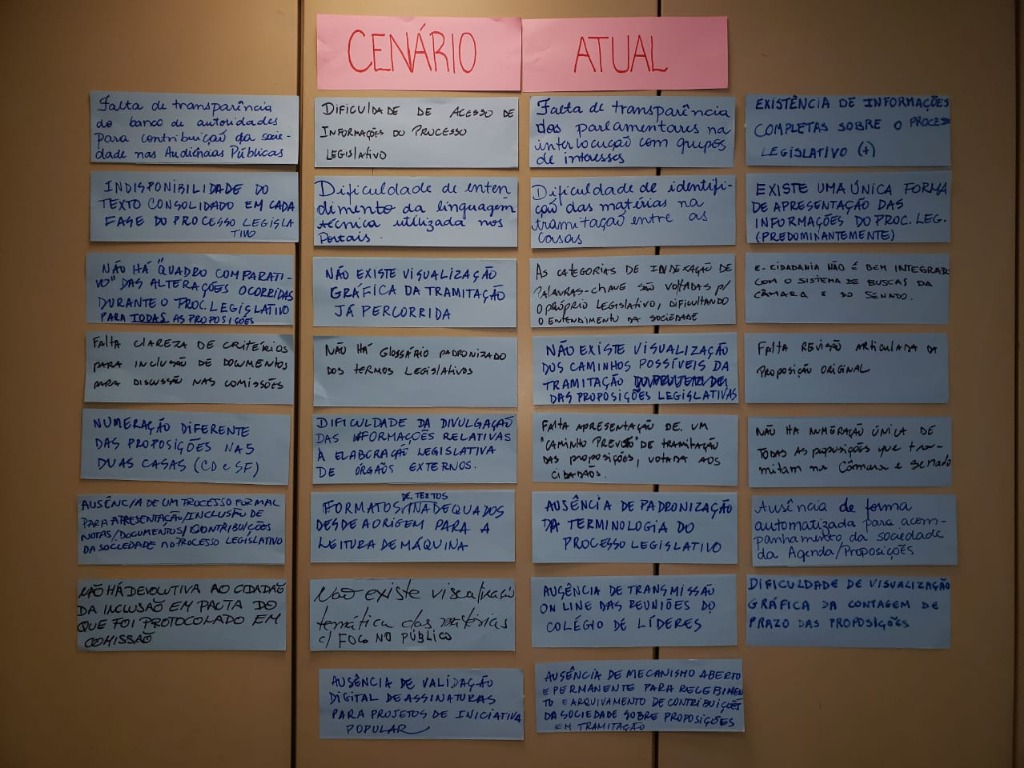 CENÁRIO ATUAL
Falta de transparência
do banco de autoridades
para contribuição da socie-
dade nas Audiências Públicas
INDISPONIBILIDADE DO
TEXTO CONSOLIDADO EM CADA
FASE DO PROCESSO LEGISLA
TIVO
NÃO HÁ "QUADRO COMPARATI-
VO" DAS ALTERAÇÕES OCORRIDAS
DURANTE O PROC. LEGISLATIVO
PARA TODAS AS PROPOSIÇÕES
FALTA CLAREZA DE CRITÉRIOS
PARA INCLUSÃO DE DOCUMENTOS
PARA DISCUSSÃO NAS COMISSÕES
NUMERAÇÃO DIFERENTE
DAS PROPOSIÇÕES NAS
DUAS CASAS (CD e SF)
AUSÊNCIA DE UM PROCESSO FORMAL
PARA APRESENTAÇÃO/INCLUSÃO DE
NOTAS/DOCUMENTOS/CONTRIBUIÇÕES
DA SOCIEDADE NO PROCESSO LEGISLATIVO
NÃO HÁ DEVOLUTIVA AO CIDADÃO
DA INCLUSÃO EM PAUTA DO
QUE FOI PROTOCOLADO EM
COMISSÃO
DIFICULDADE DE ACESSO DE
INFORMAÇÕES DO PROCESSO
LEGISLATIVO
Dificuldade de enten
dimento da linguagem
técnica utilizada nos
Portais.
NÃO EXISTE VISUALIZAÇÃO
GRÁFICA DA TRAMITAÇÃO
JÁ PERCORRIDA
NÃO HÁ GLOSSÁRIO PADRONIZADO
DOS TERMOS LEGISLATIVOS
DIFICULDADE DA DIVULGAÇÃO
DAS INFORMAÇÕES RELATIVAS
À ELABORAÇÃO LEGISLATIVA
DE ÓRGÃOS EXTERNOS.
DE TEXTOS
FORMATOS INADEQUADOS
DESDE A ORIGEM PARA A
LEITURA DE MÁQUINA
Não existe visualização
temática das matérias
c/ FOCO NO PÚBLICO
AUSÊNCIA DE VALIDAÇÃO
DIGITAL DE ASSINATURAS
PARA PROJETOS DE INICIATIVA
POPULAR
Falta de transparência
dos parlamentares na
interlocução com grupos
de interesses
Dificuldade de identifi-
cação das matérias na
tramitação entre as
Casas
AS CATEGORIAS DE INDEXAÇÃO DE
PALAVRAS-CHAVE SÃO VOLTADAS P/
O PRÓPRIO LEGISLATIVO, DIFICULTANDO
O ENTENDIMENTO DA SOCIEDADE
NÃO EXISTE VISUALIZAÇÃO
DOS CAMINHOS POSSÍVEIS DA
TRAMITAÇÃO
DAS PROPOSIÇÕES LEGISLATIVAS
FALTA APRESENTAÇÃO DE UM
"CAMINHO PREVISTO" DE TRAMITAÇÃO
DAS PROPOSIÇÕES, VOLTADA AOS
CIDADÃOS.
AUSÊNCIA DE PADRONIZAÇÃO
DA TERMINOLOGIA DO
PROCESSO LEGISLATIVO
AUSÊNCIA DE TRANSMISSÃO
ON LINE DAS REUNIÕES DO
COLÉGIO DE LÍDERES
AUSÊNCIA DE MECANISMO ABERTO
E PERMANENTE PARA RECEBIMEN
TO E ARQUIVAMENTO DE CONTRIBUIÇÕES
DA SOCIEDADE SOBRE PROPOSIÇÕES
EM TRAMITAÇÃO
EXISTÊNCIA DE INFORMAÇÕES
COMPLETAS SOBRE O PROCESSO
LEGISLATIVO (+)
EXISTE UMA ÚNICA FORMA
DE APRESENTAÇÃO DAS
INFORMAÇÕES DO PROC. LEG.
(PREDOMINANTEMENTE)
E-CIDADANIA NÃO É BEM INTEGRADO
COM O SISTEMA DE BUSCAS DA
CÂMARA E DO SENADO.
FALTA REVISÃO ARTICULADA DA
PROPOSIÇÃO ORIGINAL
NÃO HÁ NUMERAÇÃO ÚNICA DE
TODAS AS PROPOSIÇÕES QUE TRA-
MITAM NA CÂMARA E SENADO
Ausência de forma
automatizada para acom-
panhamento da sociedade
da Agenda/Proposições
DIFICULDADE DE VISUALIZAÇÃO
GRÁFICA DA CONTAGEM DE
PRAZO DAS PROPOSIÇÕES